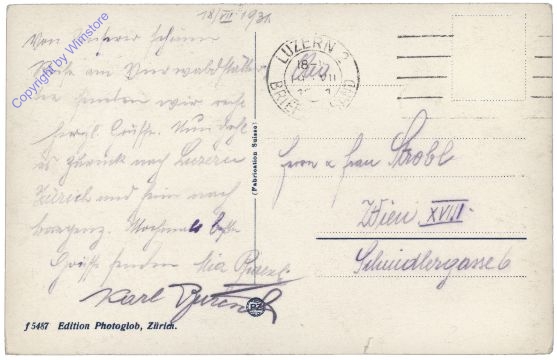 18/VII 1931
Von unserer schönen
Reise am Vierwaldstätter
See senden wir recht
herzl. Grüsse. Nun geht
es zurück nach Luzern
Zürich und heim nach
Bregenz. Nochmals beste
Grüsse senden Mia
Karl
LUZERN 2
18
VII
BRIEF
(Fabrication Suisse)
Herrn & Frau Strobl
Wien XVIII.
Schindlergasse 6
f 5487 Edition Photoglob, Zürich.
PZ
Copyright by Wimstore